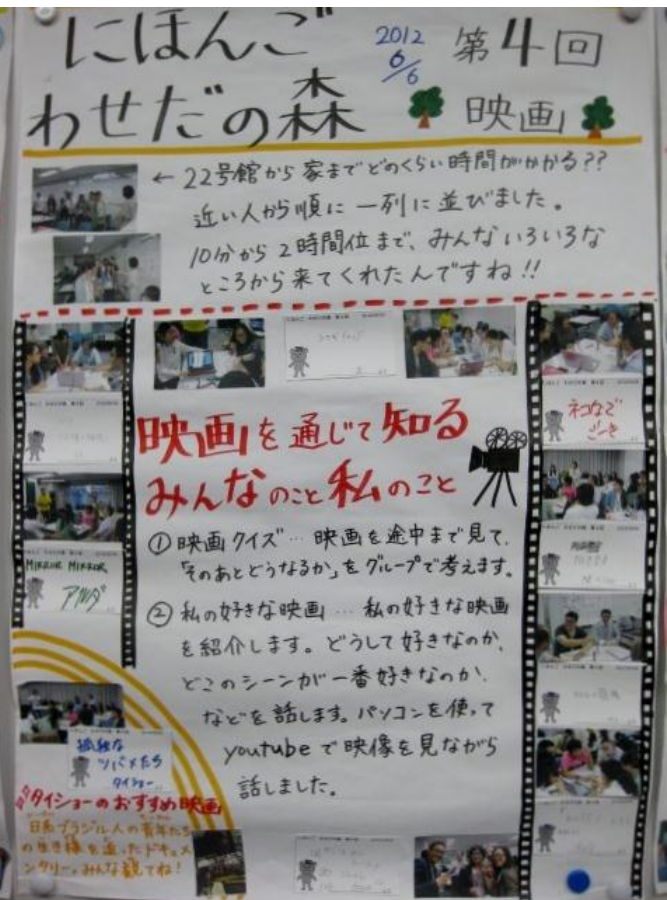 にほんご
2012
6/6
第4回
わせだの森
映画
← 22号館から家までどのくらい時間がかかる??
近い人から順に一列に並びました。
10分から2時間位まで、みんないろいろな
ところから来てくれたんですね!!
映画を通じて知る
みんなのこと私のこと
①映画クイズ… 映画を途中まで見て、
「そのあとどうなるか」をグループで考えます。
②私の好きな映画… 私の好きな映画
を紹介します。どうして好きなのか、
どこのシーンが一番好きなのか、
などを話します。パソコンを使って
youtubeで映像を見ながら
話しました。
MIRROR MIRROR
孤独な
ツバメたち
タイショー
タイショーのおすすめ映画
日系ブラジル人の青年たち
の生き様を追ったドキュメ
ンタリー。みんな観てね!